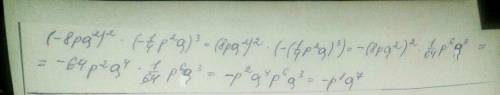 (-8pq²)² · (-1/4 p²q)³ = (8pq²)² · (-(1/4 p²q)³) = -(8pq²)² · 1/64 p⁶q³ =
= -64p²q⁴ · 1/64 p⁶q³ = -p²q⁴p⁶q³ = -p⁸q⁷